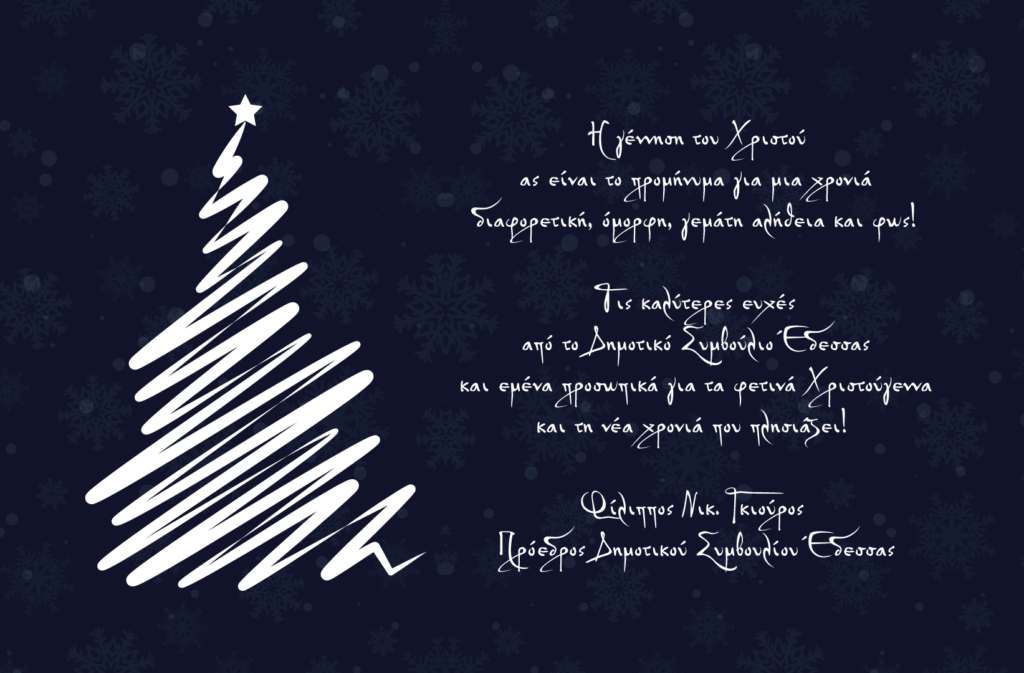 Η γέννηση του Χριστού
ας είναι το προμήνυμα για μια χρονιά
διαφορετική, όμορφη, γεμάτη αλήθεια και φως!
Τις καλύτερες ευχές
από το Δημοτικό Συμβούλιο Έδεσσας
και εμένα προσωπικά για τα φετινά Χριστούγεννα
και τη νέα χρονιά που πλησιάζει!
Φίλιππος Νικ. Γκιούρος
Πρόεδρος Δημοτικού Συμβουλίου Έδεσσας